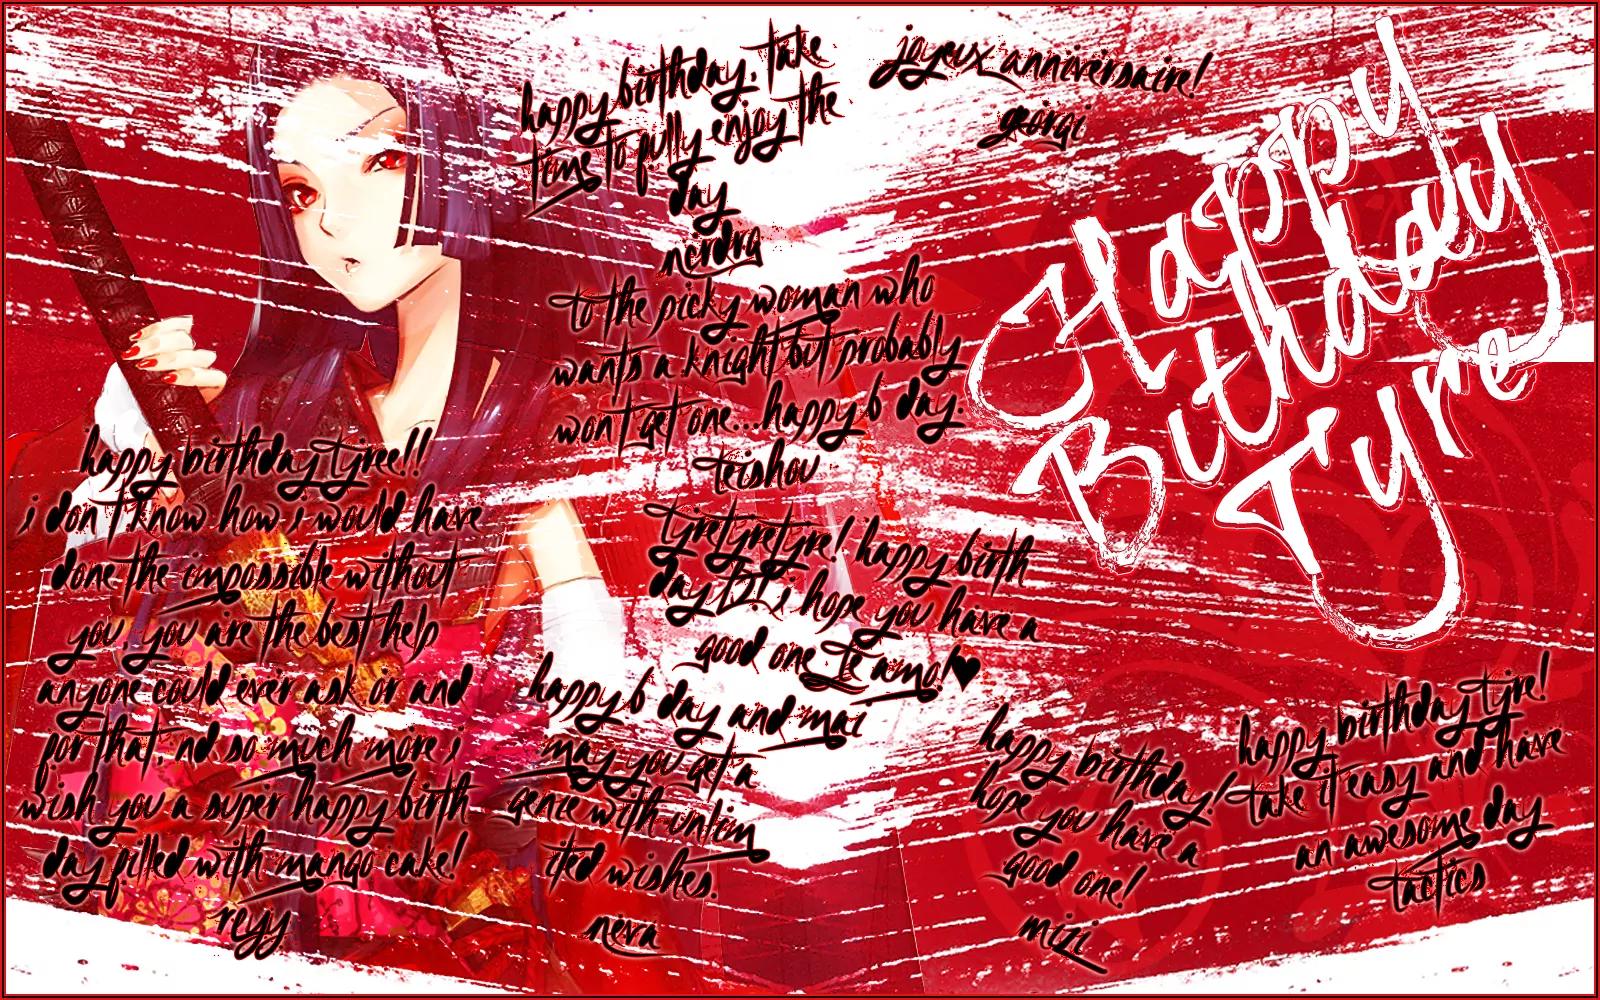 happy birthday. take
time to fully enjoy the
day
nerdra
joyeux anniversaire!
georgi
Happy
Bithday
Tyre
to the picky woman who
wants a knight but probably
won't get one...happy b day.
teishou
happy birthday tyree!!
i don't know how i would have
done the impossible without
you, you are the best help
anyone could ever ask or and
for that, nd so much more i
wish you a super happy birth
day filled with mango cake!
reyy
tyretyretyre! happy birth
day i hope you have a
good one te amo!♥
happy b day and mai
may you get a
genie with unlim
ited wishes.
neva
happy birthday!
hope you have a
good one!
mizi
happy birthday tyre!
take it easy and have
an awesome day
tactics